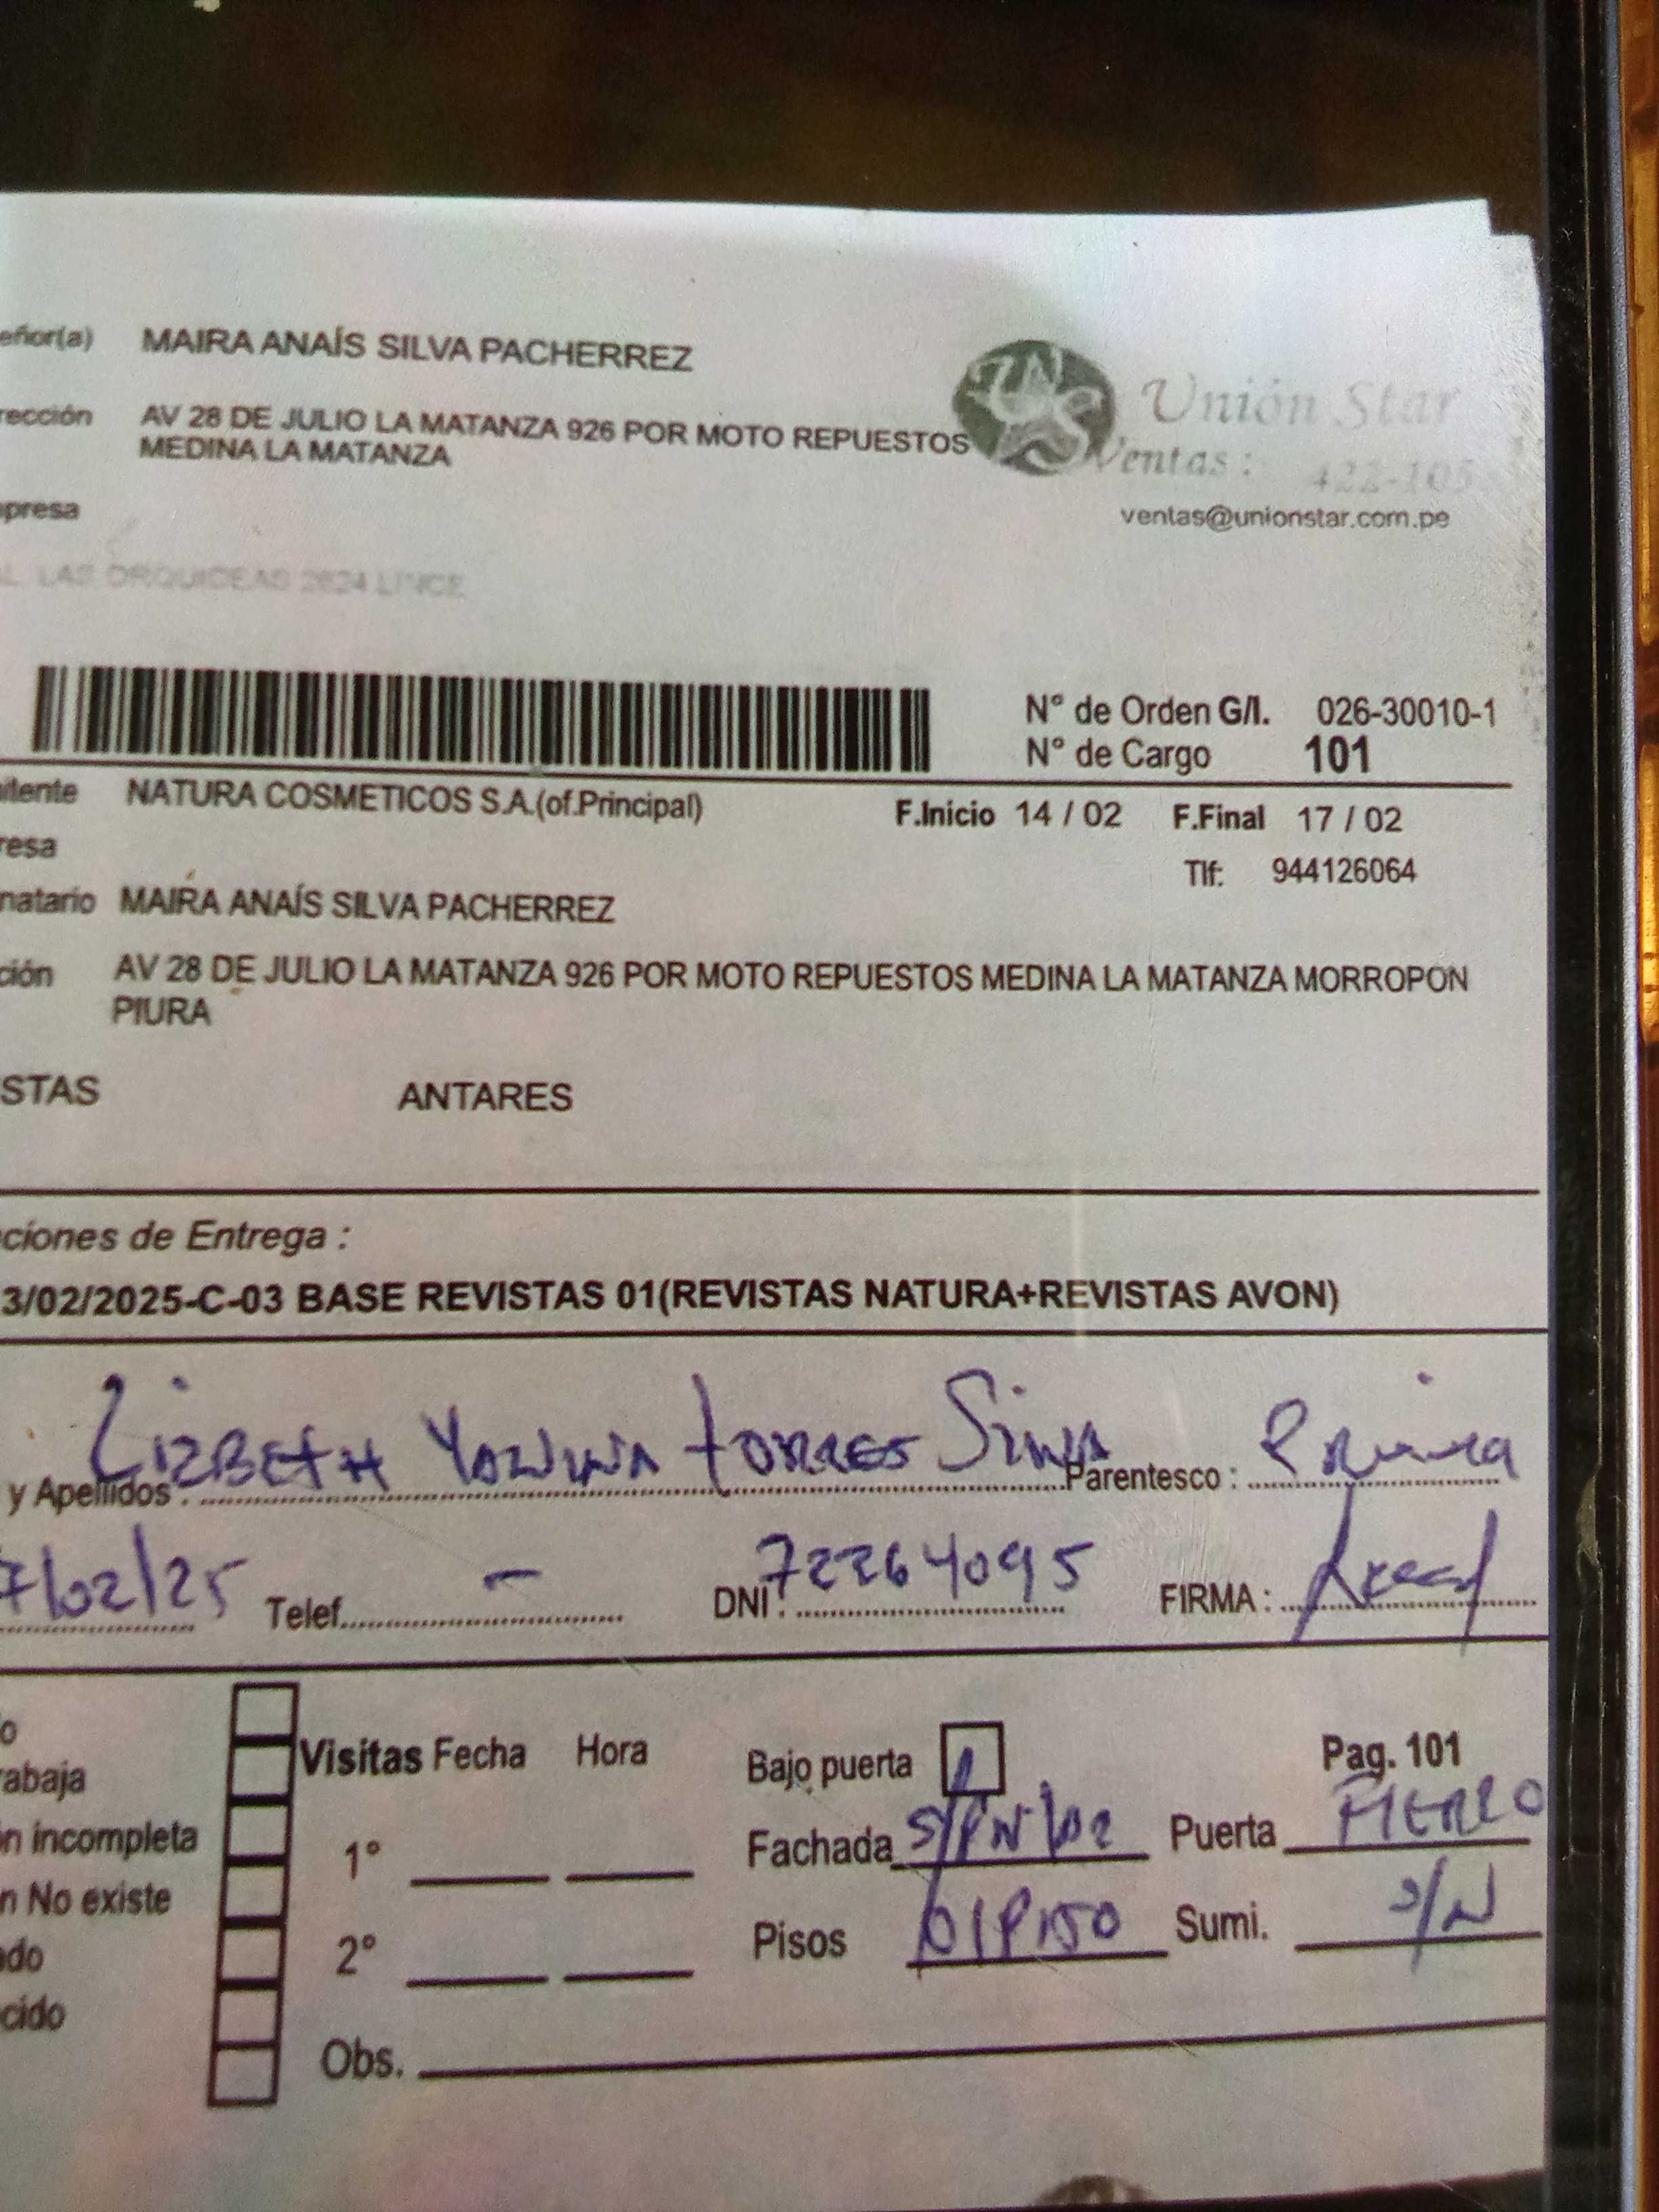 eñor(a) MAIRA ANAÍS SILVA PACHERREZ
rección AV 28 DE JULIO LA MATANZA 926 POR MOTO REPUESTOS
MEDINA LA MATANZA
Unión Star
Ventas : 422-105
presa
ventas@unionstar.com.pe
AL. LAS ORQUIDEAS 2624 LINCE
N° de Orden G/I. 026-30010-1
N° de Cargo 101
itente NATURA COSMETICOS S.A.(of.Principal) F.Inicio 14 / 02 F.Final 17 / 02
resa
Tlf: 944126064
natario MAIRA ANAÍS SILVA PACHERREZ
ción AV 28 DE JULIO LA MATANZA 926 POR MOTO REPUESTOS MEDINA LA MATANZA MORROPON
PIURA
STAS ANTARES
ciones de Entrega :
3/02/2025-C-03 BASE REVISTAS 01(REVISTAS NATURA+REVISTAS AVON)
y Apellidos : LIZBETH TORRES SILVA Parentesco : Prima
7/02/25 Telef. - DNI : 72264095 FIRMA :
o
rabaja
n incompleta
n No existe
ado
cido
Visitas Fecha Hora
1°
2°
Obs.
Bajo puerta Pag. 101
Fachada Puerta FIERRO
Pisos 01 PISO Sumi. S/N